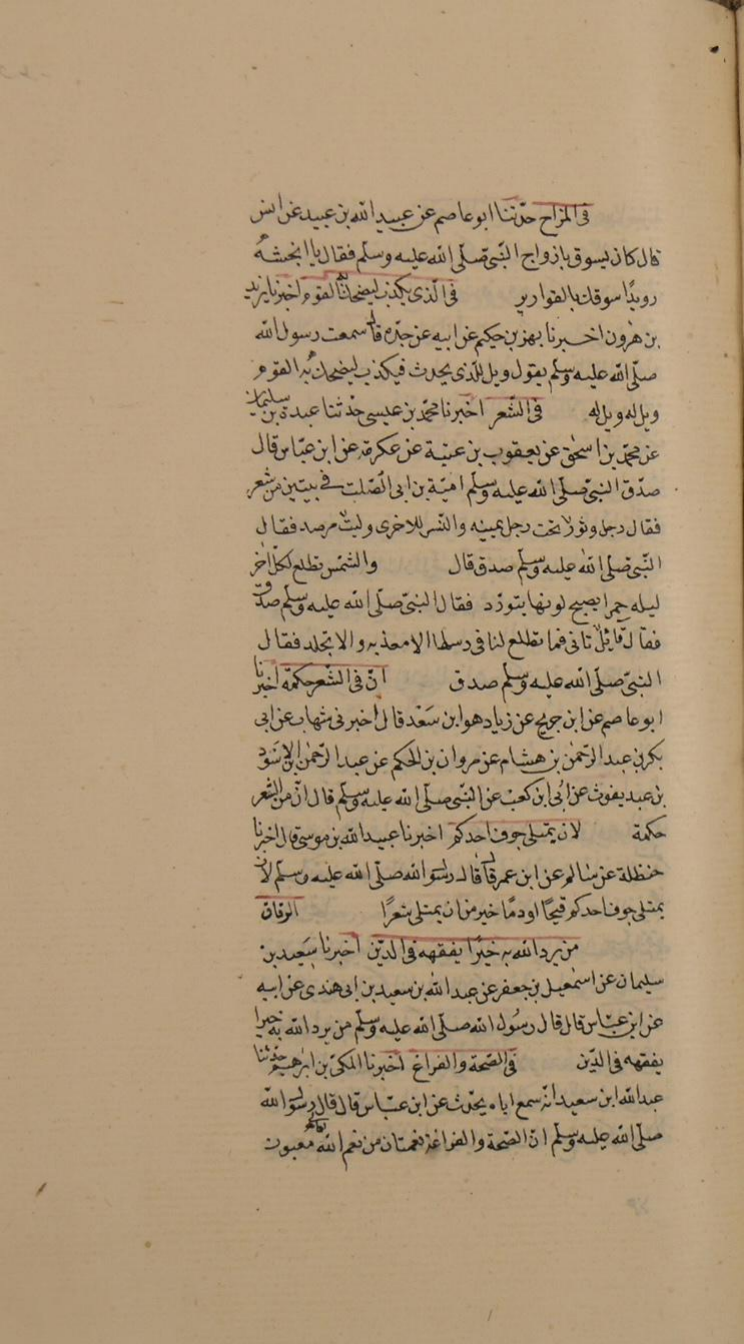 فى المزاح حدثنا ابو عاصم عن عبيد الله بن عبيد عن انس
قال كان يسوق بازواج النبى صلى الله عليه وسلم فقال يا انجشه
رويدًا سوقك بالقوارير فى الذى يكذب ليضحك به القوم اخبرنا يزيد
بن هرون اخبرنا بهز بن حكيم عن ابيه عن جده قال سمعت رسول الله
صلى الله عليه وسلم يقول ويل للذى يحدث فيكذب ليضحك به القوم
ويل له ويل له فى الشعر اخبرنا محمد بن عيسى حدثنا عبدة بن سليمان
عن محمد بن اسحق عن يعقوب بن عتبة عن عكرمة عن ابن عباس قال
صدق النبى صلى الله عليه وسلم امية بن ابى الصلت فى بيتين من شعر
فقال رجل وثور تحت رجل يمينه والنسر للاخرى وليث مرصد فقال
النبى صلى الله عليه وسلم صدق قال والشمس تطلع لكل اخر
ليله حمرا يصبح لونها يتورد فقال النبى صلى الله عليه وسلم صدق
فقال قائل تابى فما تطلع لنا فى رسلها الا معذبه والا تجلد فقال
النبى صلى الله عليه وسلم صدق ان فى الشعر حكمة اخبرنا
ابو عاصم عن ابن جريج عن زياد هو ابن سعد قال اخبرنى شهاب عن ابى
بكر بن عبد الرحمن بن هشام عن مروان بن الحكم عن عبد الرحمن بن الاسود
بن عبد يغوث عن ابى ابن كعب عن النبى صلى الله عليه وسلم قال ان من الشعر
حكمة لان يمتلى جوف احدكم اخبرنا عبيد الله بن موسى قال اخبرنا
حنظلة عن سالم عن ابن عمر قال قال رسول الله صلى الله عليه وسلم لان
يمتلى جوف احدكم قيحًا او دمًا خير من ان يمتلى شعرًا الرقاق
من يرد الله به خيرًا يفقهه فى الدين اخبرنا سعيد بن
سليمان عن اسمعيل بن جعفر عن عبد الله بن سعيد بن ابى هندى عن ابيه
عن ابن عباس قال قال رسول الله صلى الله عليه وسلم من يرد الله به خيرا
يفقهه فى الدين فى الصحة والفراغ اخبرنا المكى بن ابرهيم حدثنا
عبد الله ابن سعيد انه سمع اباه يحدث عن ابن عباس قال قال رسول الله
صلى الله عليه وسلم ان الصحة والفراغ نعمتان من نعم الله مغبون